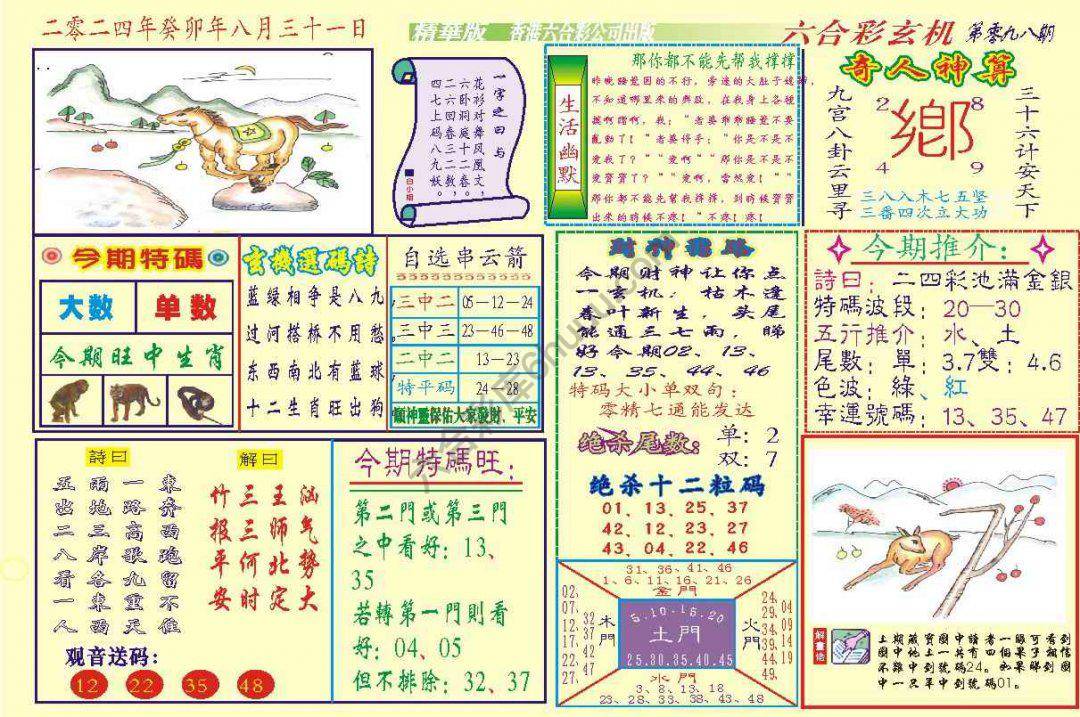 二零二四年癸卯年八月三十一日
精華版 香港六合彩公司出版
六合彩玄机 第零九八期
一字之曰与
花衫对舞风凰文，
六卧祠庭十二春。
二六回春三二数，
四七上码八九妖。
白小姐
生活幽默
那你都不能先帮我撑撑
不知道哪里来的兴致，在我身上各种
爱我了？""爱啊""那你是不是不
那你都不能先帮我撑撑，到时候宝宝
出来的时候不疼！"不疼！疼！
奇人神算
九宫八卦云里寻
2 8
鄉
4 9
三十六计安天下
三八入木七五坚
三番四次立大功
今期特碼
大数 单数
今期旺中生肖
玄機選碼詩
蓝绿相争是八九
过河搭桥不用愁
东西南北有蓝球
十二生肖旺出狗
自选串云箭
三中二 05—12—24
三中三 23—46—48
二中二 13—23
特平码 24—28
顺神靈保佑大家發財、平安
财神
今期财神让你点
一玄机：枯木逢
春叶新生，头尾
能通三七雨，睇
好今期02、13、
13、35、44、46
特码大小单双句：
零精七通能发达
绝杀尾数：
单：2
双：7
绝杀十二粒码
01、13、25、37
42、12、23、27
43、04、22、46
今期推介：
詩曰：二四彩池滿金銀
特碼波段：20—30
五行推介：水、土
尾數：單：3.7雙：4.6
色波：綠、紅
幸運號碼：13、35、47
詩曰
東奔西跑留不住
一路高歌九重天
雨地三岸各東西
五出二八看一人
解曰
汹气势大
王师北定
三三何时
竹报平安
观音送码：
12 22 35 48
今期特碼旺：
第二門或第三門
之中看好：13、
35
若轉第一門則看
好：04、05
但不排除：32、37
31、36、41、46
1、6、11、16、21、26
金門
02、07、12、17、22、27
32、37、42、47
木門
5.10-15.20
土門
25.30.35.40.45
火門
24、29、34、39、44、49
04、09、14、19
水門
3、8、13、18
23、28、33、38、43、48
解畫信
上期藏寶圖中讀者一眼可看到
圖中地上一共有四個果子相信
不難中到號碼24。如果睇到圖
中一只羊中到號碼01。